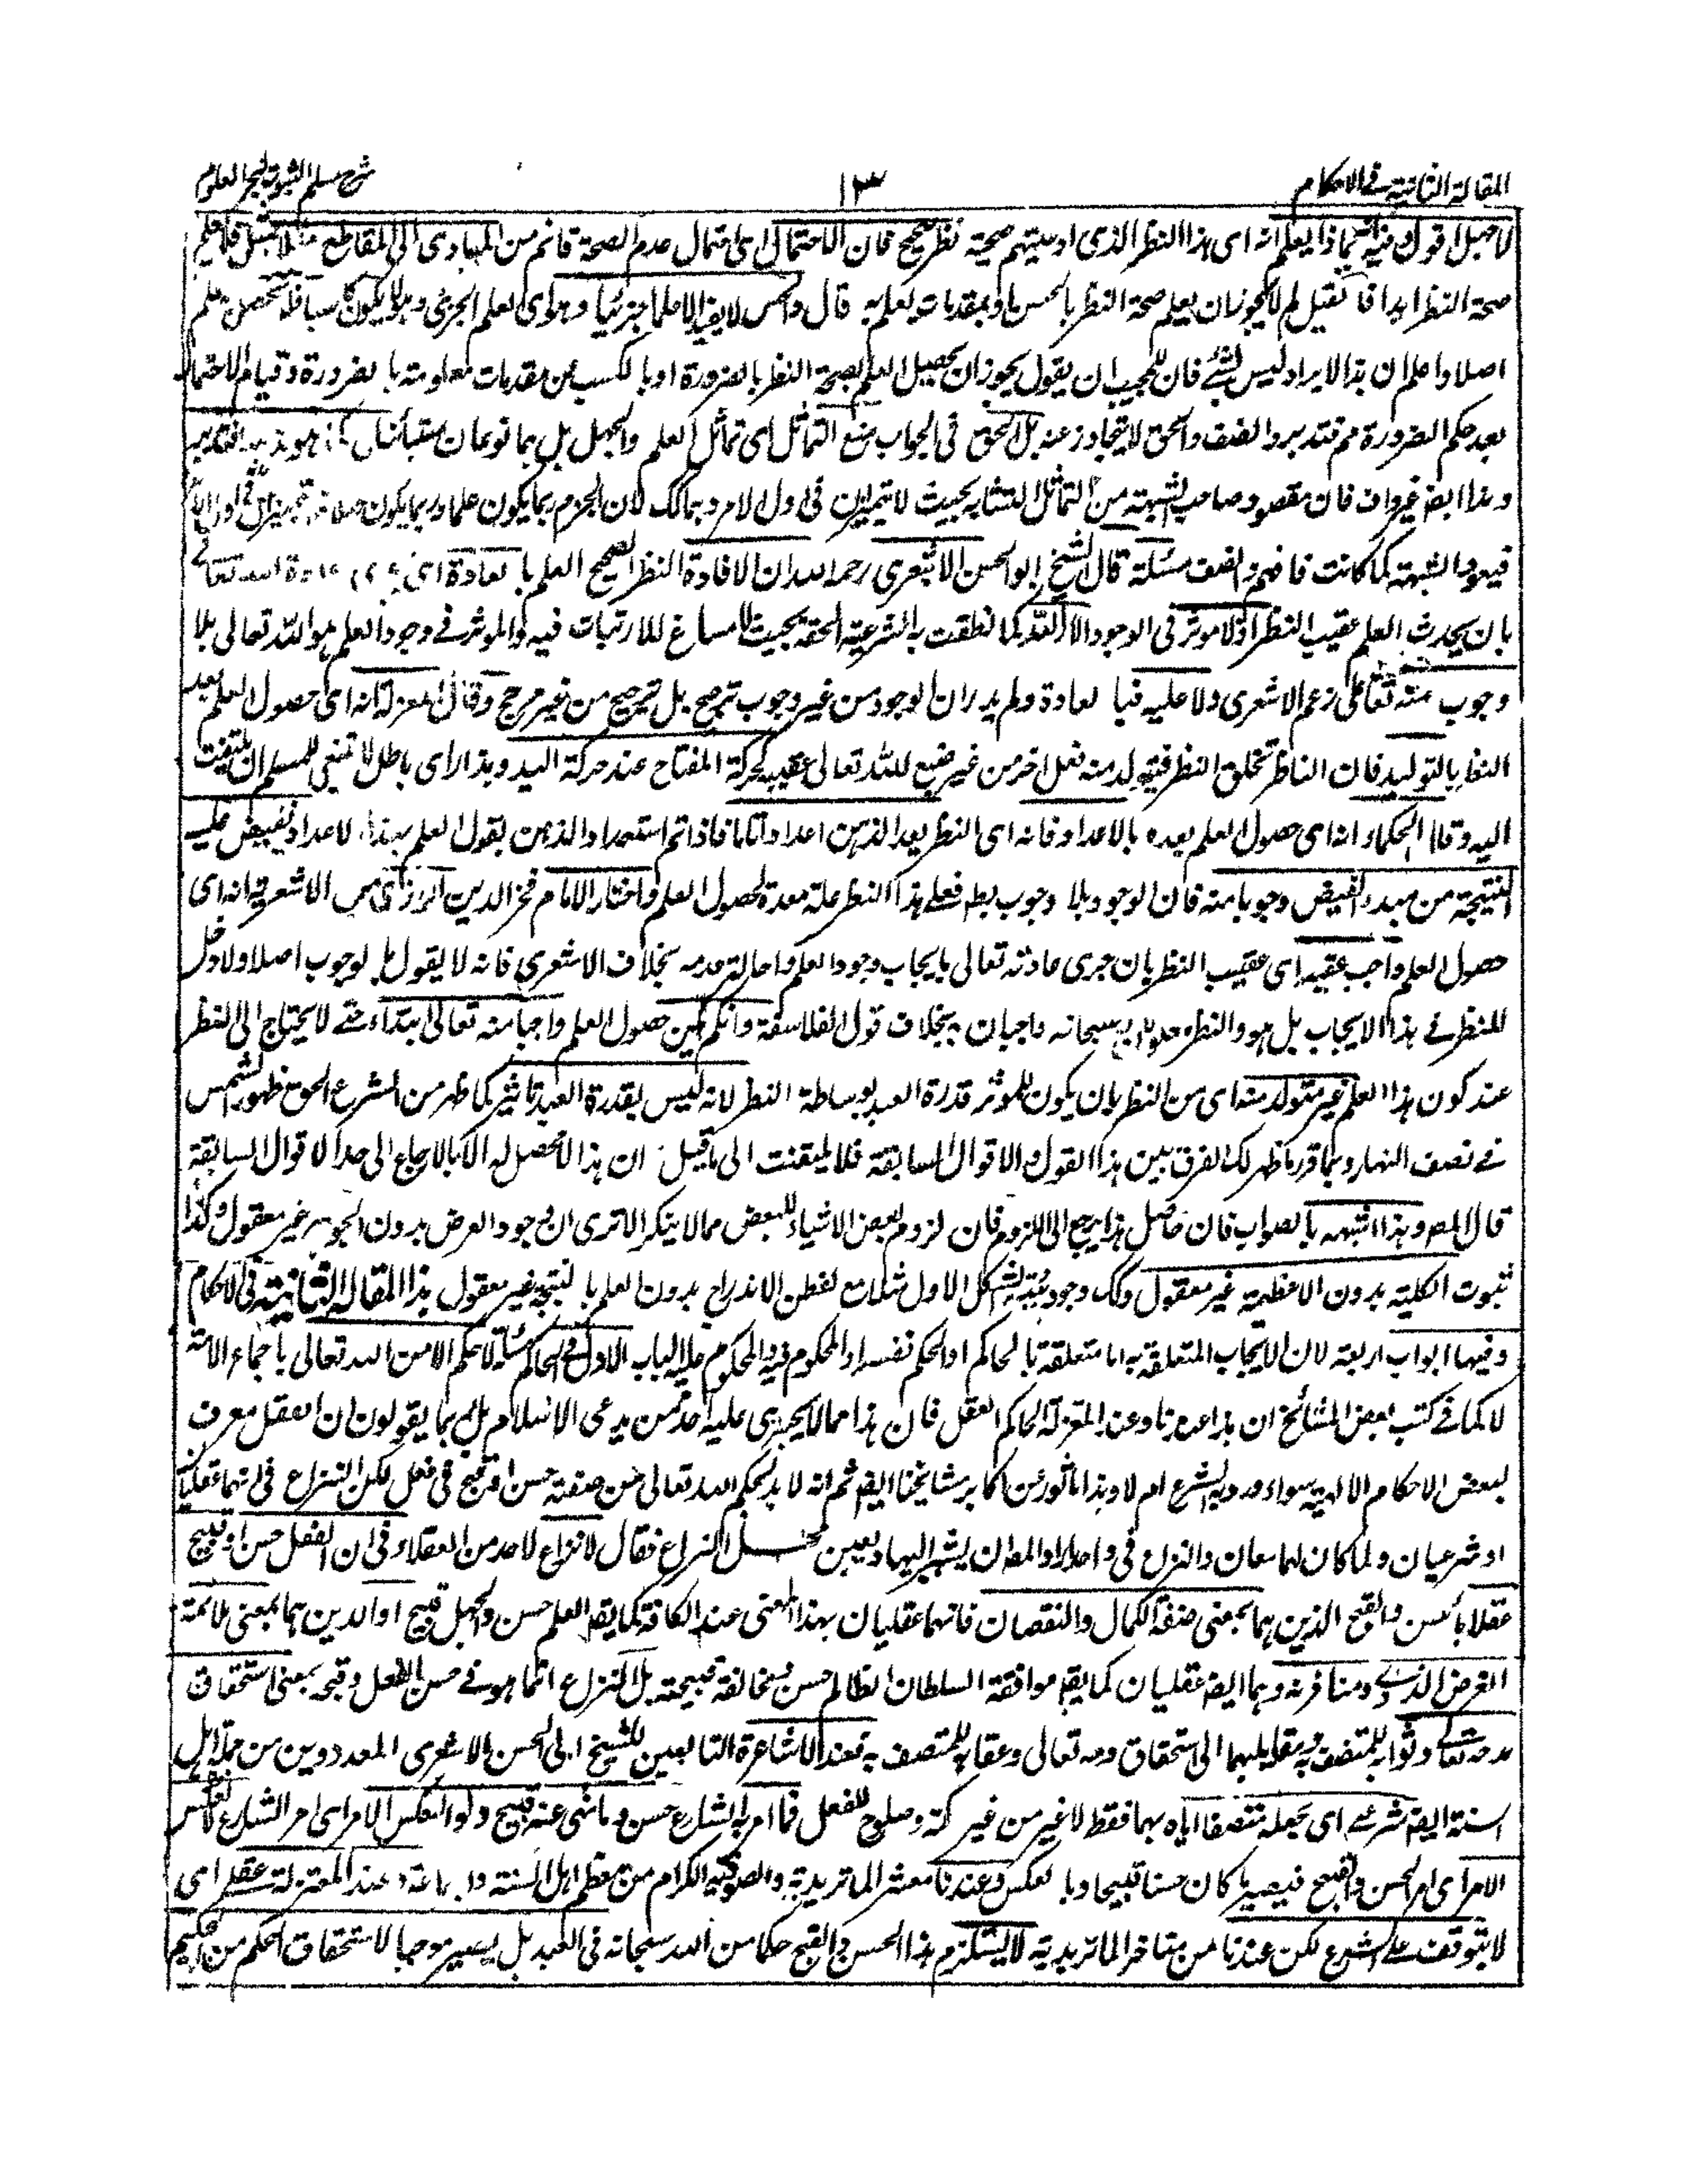 المقالة الثانية فى الاحكام
١٣
شرح مسلم الثبوت لبحر العلوم
لا جهل اقول فيه انه بماذا يعلم انه اى هذا النظر الذى ادعيتم صحته نظر صحيح فان الاحتمال اى احتمال عدم الصحة قائم من المبادى الى المقاطع مثلا بمثل فلا يعلم
صحة النظر ابدا فان قيل لم لا يجوز ان يعلم صحة النظر بالحس او بمقدمات تعلم به قال والحس لا يفيد الا علما جزئيا وهو اى العلم الجزئى وهو لا يكون كاسبا فلا يتحصل منه علم
اصلا واعلم ان هذا الايراد ليس بشئ فان للمجيب ان يقول يجوز ان يحصل العلم بصحة النظر بالضرورة او بالكسب من مقدمات معلومة بالضرورة وقيام الاحتمال
بعد حكم الضرورة مم فتدبر والحق لا يتجاوز عنه بل الحق فى الجواب منع التماثل اى تماثل العلم والجهل بل هما نوعان متبائنان
وهذا ايضا غير واف فان مقصود صاحب الشبهة من التماثل التشابه بحيث لا يتميزان فى اول الامر وهما كك لان الجزم ربما يكون علما وربما يكون جهلا
فيعود الشبهة كما كانت فافهم وانصف مسئلة قال الشيخ ابو الحسن الاشعرى رحمه الله ان الافادة النظر الصحيح العلم بالعادة اى عادة الله تعالى
بان يحدث العلم عقيب النظر اذ لا موثر فى الوجود الا الله كما نطقت به الشرعية الحقة بحيث لا مساغ للارتياب فيه والموثر فى وجود العلم هو الله تعالى بلا
وجوب منه تعالى على زعم الاشعرى ولا عليه فبالعادة ولم يدر ان الوجود من غير وجوب ترجيح بل ترجيح من غير مرجح وقال المعتزلة انه اى حصول العلم بعد
النظر بالتوليد فان الناظر يخلق النظر فيتولد منه فعل اخر من غير صنع لله تعالى عقيبه كحركة المفتاح عند حركة اليد وهذا راى باطل لا ينبغى للمسلم ان يلتفت
اليه وقال الحكماء انه اى حصول العلم بعده بالاعداد فانه اى النظر يعد الذهن اعدادا تاما فاذا تم استعداد الذهن لقبول العلم بهذا الاعداد تفيض عليه
النتيجة من مبدء الفيض وجوبا منه فان الوجود بلا وجوب بط فعلى هذا النظر علة معدة لحصول العلم واختار الامام فخر الدين الرازى من الاشعرية انه اى
حصول العلم واجب عقيبه اى عقيب النظر بان جرى عادته تعالى بايجاب وجود العلم واحالة عدمه بخلاف الاشعرى فانه لا يقول بالوجوب اصلا ولا دخل
للنظر فى هذا الايجاب بل هو والنظر معلولان له سبحانه واجبان به بخلاف قول الفلاسفة وان لم يكن حصول العلم واجبا منه تعالى ابتداء حتى لا يحتاج الى النظر
عند كون هذا العلم غير متولد منه اى من النظر بان يكون للموثر قدرة العبد بوساطة النظر لانه ليس بقدرة العبد تاثير كما ظهر من الشرع الحق ظهور الشمس
فى نصف النهار وبما قررنا ظهر لك الفرق بين هذا القول والاقوال السابقة فلا يلتفت الى ما قيل ان هذا لا محصل له الا بالارجاع الى احد الاقوال السابقة
قال المص وهذا اشبه بالصواب فان حاصل هذا يرجع الى اللزوم فان لزوم بعض الاشياء للبعض مما لا ينكر الا ترى ان وجود العرض بدون الجوهر غير معقول وكذا
ثبوت الكلية بدون الاعظمية غير معقول وكك وجود هيئة الشكل الاول مثلا مع تفطن الاندراج بدون العلم بالنتيجة غير معقول هذا المقالة الثانية فى الاحكام
وفيها ابواب اربعة لان الايجاب المتعلقة به اما متعلقة بالحاكم او الحكم نفسه او المحكوم فيه والمحكوم عليه الباب الاول فى الحاكم مسئلة لا حكم الا من الله تعالى باجماع الامة
لا كما فى كتب بعض المشائخ ان هذا عندنا وعند المعتزلة الحاكم العقل فان هذا مما لا يجترى عليه احد ممن يدعى الاسلام بل انما يقولون ان العقل معرف
لبعض الاحكام الالهية سواء ورد به الشرع ام لا وهذا ماثور عن اكابر مشايخنا ايضا ثم انه لا بد لحكم الله تعالى من صفة حسن او قبح فى فعل لكن النزاع فى انهما عقليان
او شرعيان ولما كان لهما معان والنزاع فى واحد اراد المص ان يشير اليها ويعين محل النزاع فقال لا نزاع لاحد من العقلاء فى ان الفعل حسن او قبيح
عقلا بالحسن والقبح الذين هما بمعنى صفة الكمال والنقصان فانهما عقليان بهذا المعنى عند الكافة كما يقم العلم حسن والجهل قبيح او الذين هما بمعنى ملائمة
الغرض الدنيوى ومنافرته وهما ايضا عقليان كما يقم موافقة السلطان الظالم حسن ومخالفته قبيحة بل النزاع انما هو فى حسن الفعل وقبحه بمعنى استحقاق
مدحه تعالى وثوابه للمتصف به ومقابليهما اى استحقاق ذمه تعالى وعقابه للمتصف به فعند الاشاعرة التابعين للشيخ ابى الحسن الاشعرى المعدودين من جملة اهل
السنة ايضا شرعى اى بجعله متصفا اياه بهما فقط لا غير من غير حكمة وصلوح للفعل فما امر به الشارع حسن وما نهى عنه قبيح ولو انعكس الامر اى امر الشارع لانعكس
الامر اى امر الحسن والقبح فيصير ما كان حسنا قبيحا وبالعكس وعندنا معشر الماتريدية والصوفية الكرام من معظم اهل السنة والجماعة وعند المعتزلة عقلى اى
لا يتوقف على الشرع لكن عندنا من متاخرى الماتريدية لا يستلزم هذا الحسن والقبح حكما من الله سبحانه فى العبد بل يصير موجبا لاستحقاق الحكم من الحكيم